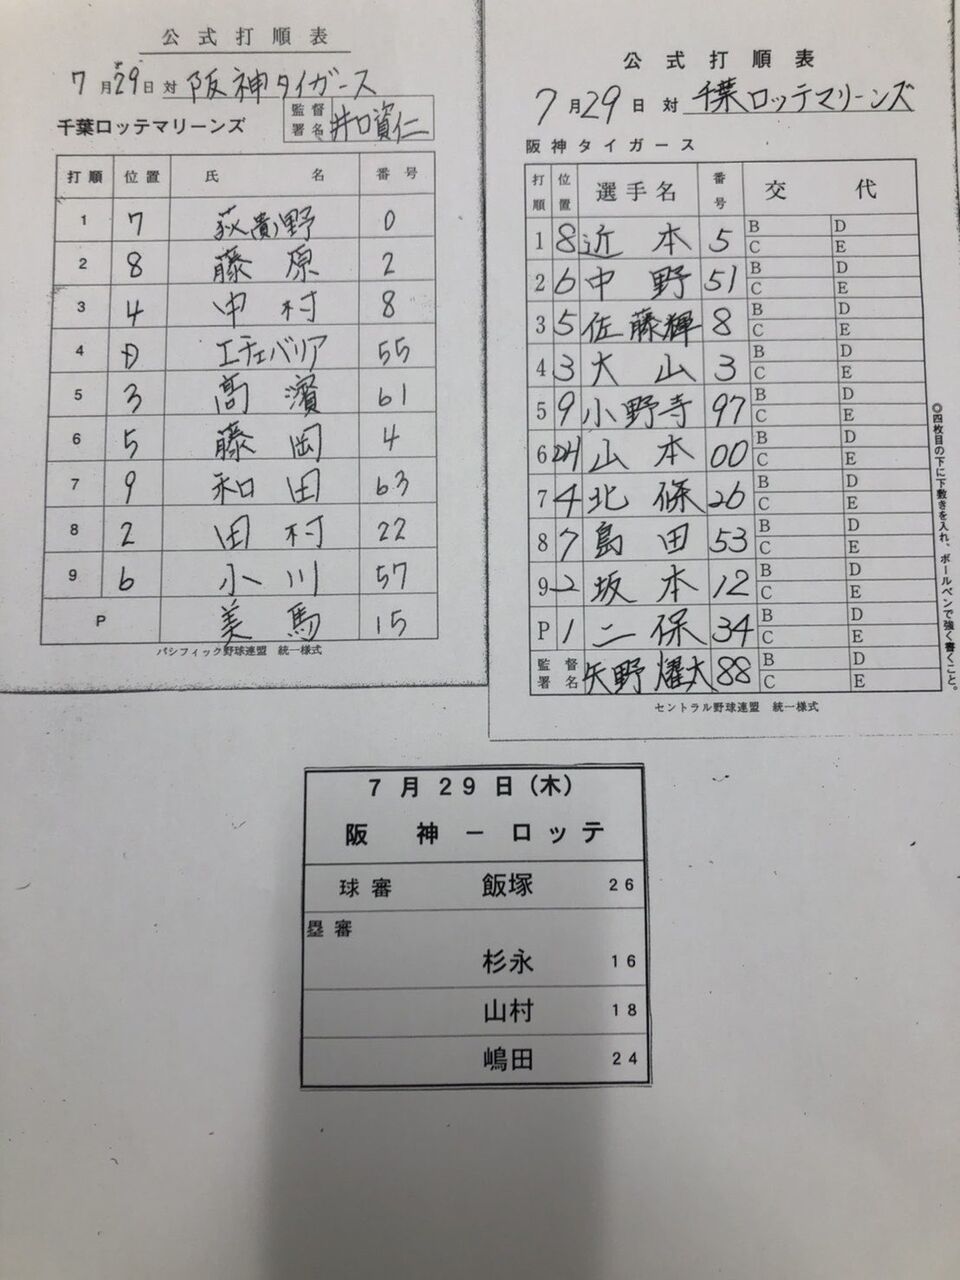 公式打順表
7月29日 対 阪神タイガース
千葉ロッテマリーンズ 監督署名 井口資仁
打順 位置 氏名 番号
1 7 荻貴野 0
2 8 藤原 2
3 4 中村 8
4 D エチェバリア 55
5 3 高濱 61
6 5 藤岡 4
7 9 和田 63
8 2 田村 22
9 6 小川 57
P 美馬 15
パシフィック野球連盟 統一様式
公式打順表
7月29日 対 千葉ロッテマリーンズ
阪神タイガース
打順 位置 選手名 番号 交代
1 8 近本 5 B D C E
2 6 中野 51 B D C E
3 5 佐藤輝 8 B D C E
4 3 大山 3 B D C E
5 9 小野寺 97 B D C E
6 DH 山本 00 B D C E
7 4 北條 26 B D C E
8 7 島田 53 B D C E
9 2 坂本 12 B D C E
P 1 二保 34 B D C E
監督署名 矢野燿太 88 B D C E
セントラル野球連盟 統一様式
◎四枚目の下に下敷きを入れ、ボールペンで強く書くこと。
7月29日(木)
阪神－ロッテ
球審 飯塚 26
塁審
杉永 16
山村 18
嶋田 24